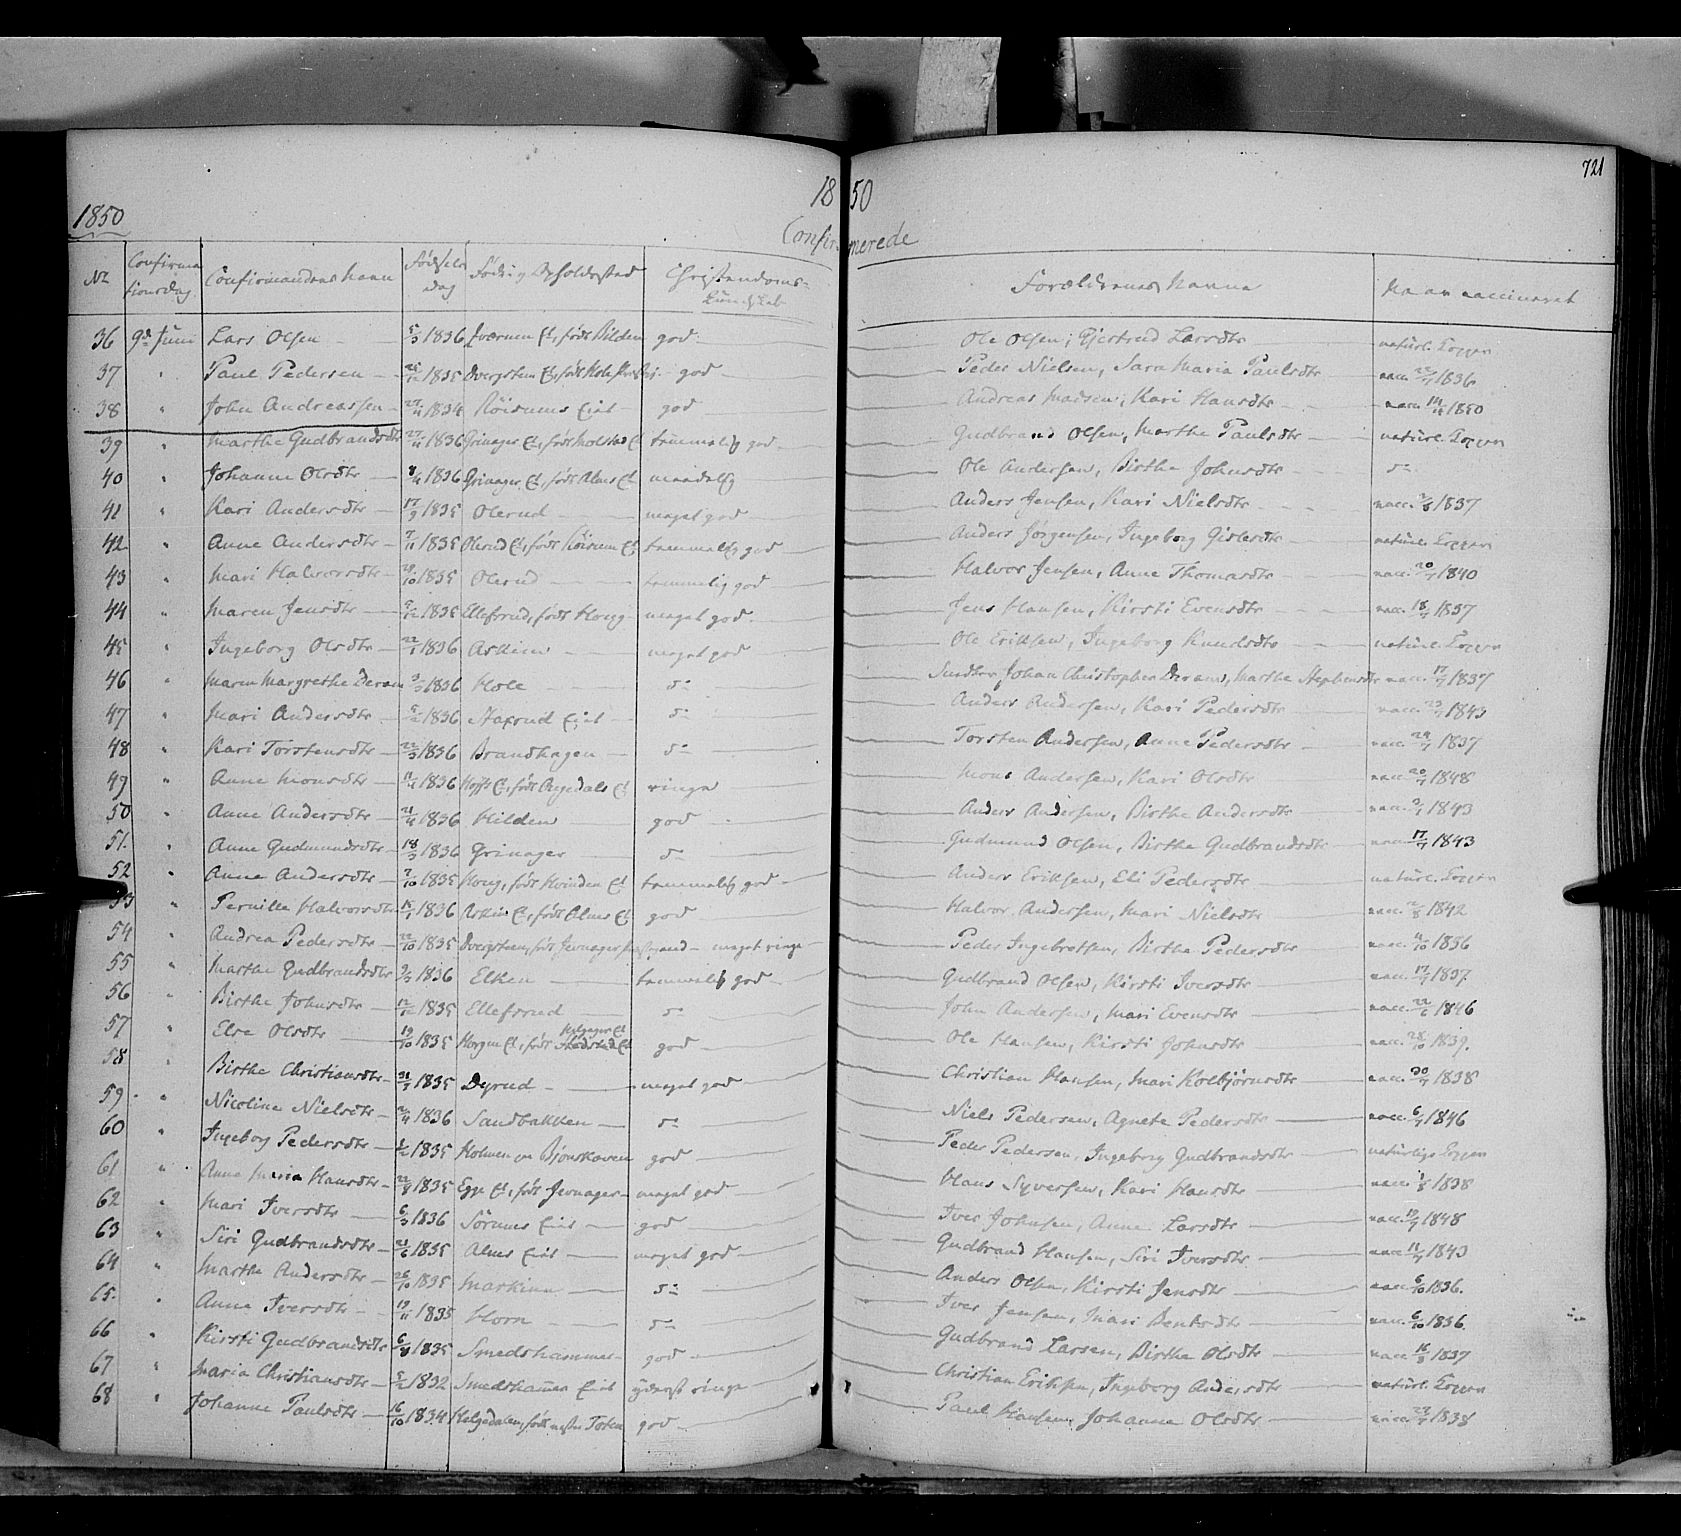 721
18 50
1850
Confirmerede
No Confirmationsdag Confirmandens Navn Fødselsdag Føde og Opholdssted Christendoms-Kundskab Forældrenes Navne Naar vaccineret
36 9de Juni Lars Olsen 5/3 1836 født Bilden god Ole Olsen, Gjertrud Larsdtr naturl. Kopper
37 " Paul Pedersen 1835 Dvergsten Et, født god Peder Nielsen, Sara Maria Paulsdtr vacc. 1836
38 " John Andreassen 1834 Röisums Eiet god Andreas Madsen, Kari Hansdtr vacc. 1850
39 " Marthe Gudbrandsdtr 1836 Grinager Et, født Holstad Et temmelig god Gudbrand Olsen, Marthe Paulsdtr naturl. Kopper
40 " Johanne Olsdtr 1836 Grinager Et, født Alms Et maadelig Ole Andersen, Birthe Johnsdtr do
41 " Kari Andersdtr 17/9 1835 Olerud meget god Anders Jensen, Kari Nielsdtr vacc. 1837
42 " Anne Andersdtr 7/11 1835 Olerud Et, født Röisum Et temmelig god Anders Jørgensen, Ingeborg Gislesdtr naturl. Kopper
43 " Mari Halvorsdtr 1835 Olerud temmelig god Halvor Jensen, Anne Thomasdtr vacc. 1840
44 " Maren Jensdtr 1835 Ellefsrud, født Houg meget god Jens Hansen, Kirsti Evensdtr vacc. 1837
45 " Ingeborg Olsdtr 1836 Askim meget god Ole Eriksen, Ingeborg Knudsdtr naturl. Kopper
46 " Maren Margrethe Deram 1836 Hole do Johan Christopher Deram, Marthe Stephensdtr vacc. 1837
47 " Mari Andersdtr 1836 Aafsrud Eiet do Anders Andersen, Kari Pedersdtr vacc. 1843
48 " Kari Torstensdtr 22/3 1836 Brandhagen do Torsten Andersen, Anne Pedersdtr vacc. 1837
49 " Anne Monsdtr 1836 ringe Mons Andersen, Kari Olsdtr vacc. 1848
50 " Anne Andersdtr 1836 Hilden god Anders Andersen, Birthe Andersdtr vacc. 1843
51. " Anne Gudmundsdtr 18/3 1836 Grinager do Gudmund Olsen, Birthe Gudbrandsdtr vacc. 1843
52 " Anne Andersdtr 7/10 1835 Houg, født Hvinden Et temmelig god Anders Eriksen, Eli Pedersdtr naturl. Kopper
53 " Pernille Halvorsdtr 1836 Askim Et, født Alms Et god Halvor Andersen, Mari Nielsdtr vacc. 1842
54 " Andrea Pedersdtr 22/10 1835 Dvergsten, født Jevnager meget ringe Peder Ingebretsen, Birthe Pedersdtr vacc. 1836
55 " Marthe Gudbrandsdtr 1836 Elken temmelig god Gudbrand Olsen, Kirsti Iversdtr vacc. 1837
56 " Birthe Johnsdtr 1835 Ellefsrud do John Andersen, Mari Evensdtr vacc. 1846
57 " Else Olsdtr 19/10 1835 Horgen Et, født god Ole Hansen, Kirsti Johnsdtr vacc. 1839.
58 " Birthe Christiansdtr 1835 Dyrud meget god Christian Hansen, Mari Kolbjörnsdtr vacc. 1838
59 " Nicoline Nielsdtr 1836 Sandbakken do Niels Pedersen, Agnete Pedersdtr vacc. 1846
60 " Ingeborg Pedersdtr 1835 Holmen god Peder Pedersen, Ingeborg Gudbrandsdtr naturlige Kopper
61 " Anne Maria Hansdtr 1835 Egge Et, født Jevnager meget god Hans Syversen, Kari Hansdtr vacc. 1838
62 " Mari Iversdtr 6/3 1836 Sörums Eiet god Iver Johnsen, Anne Larsdtr vacc. 1848
63 " Siri Gudbrandsdtr 21/6 1835 Alms Eiet meget god Gudbrand Hansen, Siri Iversdtr vacc. 1843
64 " Marthe Andersdtr 26/10 1835 Markinn do Anders Olsen, Kirsti Jensdtr vacc. 6/10 1836.
65. " Anne Iversdtr 19/11 1835 Horn do Iver Jensen, Mari Bentsdtr vacc. 6/10 1836.
66 " Kirsti Gudbrandsdtr 6/8 1835 Smedshammer god Gudbrand Larsen, Birthe Olsdtr vacc. 1837
67 " Maria Christiansdtr 1832 Smedshamer Eiet yderst ringe Christian Eriksen, Ingeborg Andersdtr naturl. Kopper
68 " Johanne Paulsdtr 16/10 1834 Helgedalen, født vestre Toten god Paul Hansen, Johanne Olsdtr vacc. 1838